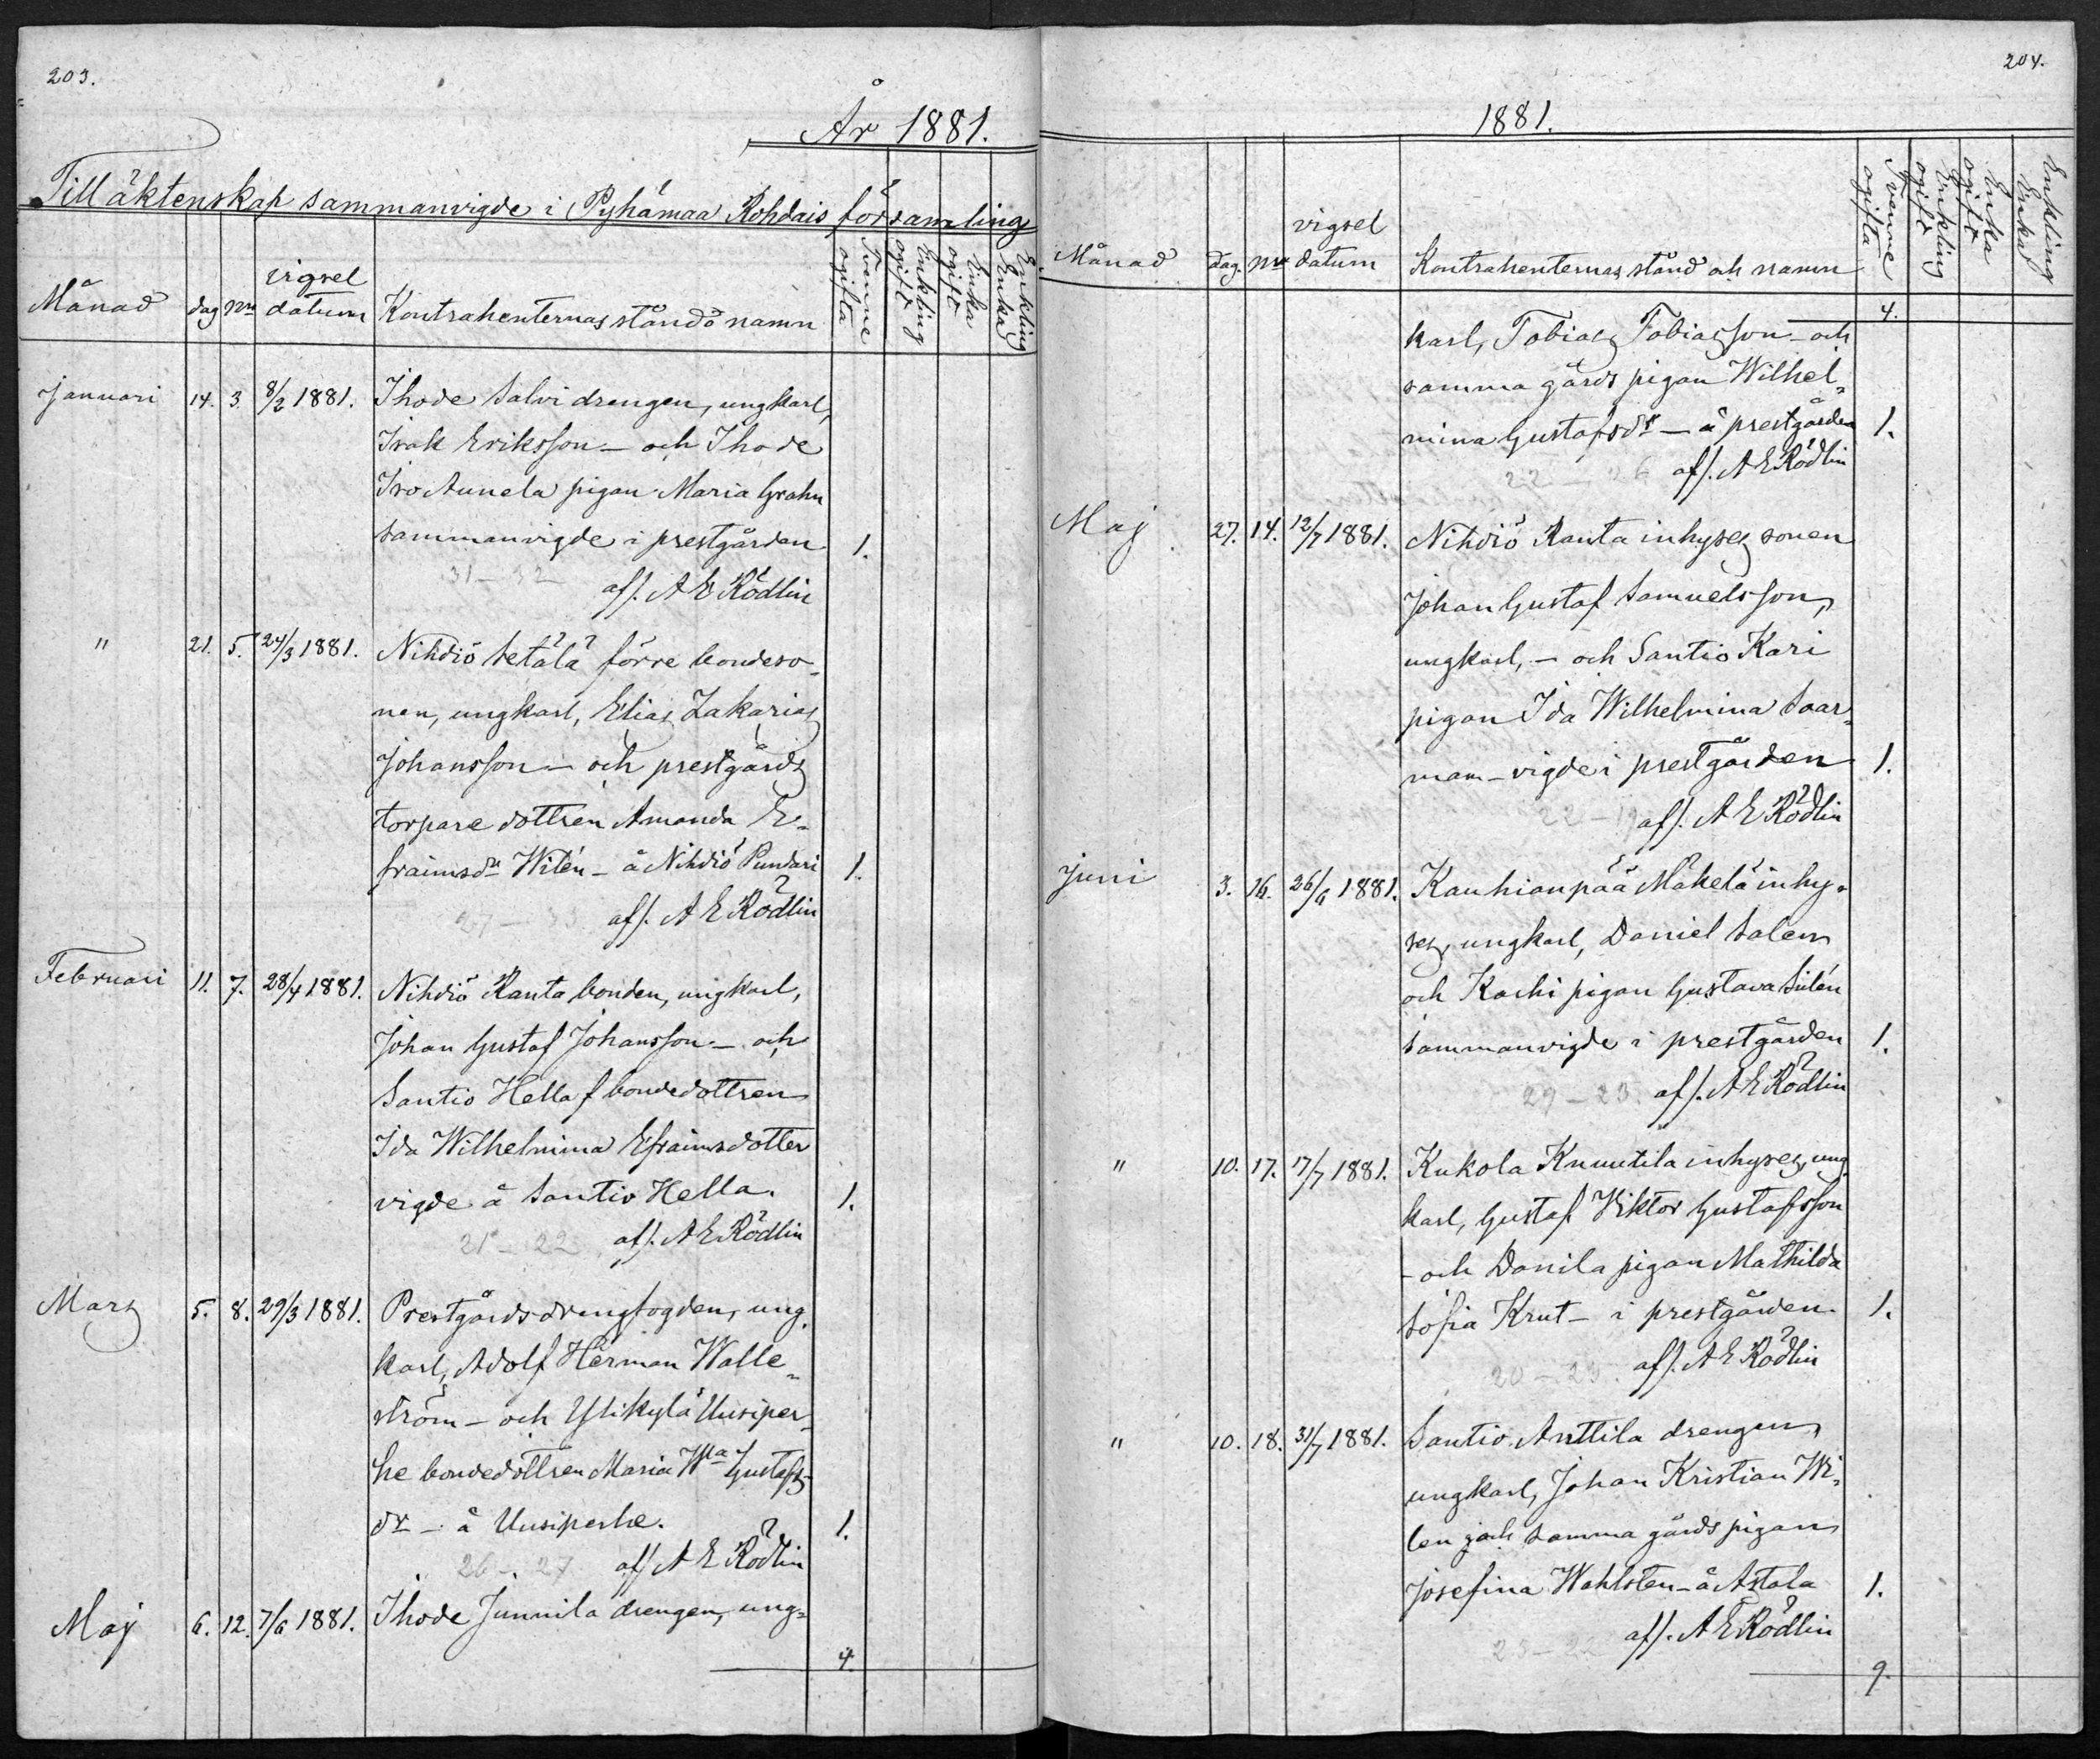 203.
År 1881.
Till äktenskap sammanvigde i Pyhämaa Rohdais församling
Månad dag Nro vigsel datum Kontrahenternas stånd o namn Tvenne ogifta Enkling ogift Enka ogift Enkling Enka
Januari 14. 3. 8/2 1881. Ihode Salvi drengen, ungkarl,
Isak Eriksson — och Ihode
Iso Aunela pigan Maria Grahn
sammanvigde i prestgården 1.
31–32 af/. A E Rödlin
" 21. 5. 24/3 1881. Nihdiö Setälä förre bondeso-
nen, ungkarl, Elias Zakarias
Johansson — och prestgårds
torpare dottren Amanda E-
fraimsdr Witén — å Nihdiö Pundari 1.
27 – 33 af/. A E Rödlin
Februari 11. 7. 28/4 1881. Nihdiö Ranta bonden, ungkarl,
Johan Gustaf Johansson — och
Santio Hella f bondedottren
Ida Wilhelmina Efraimsdotter
vigde å Santio Hella. 1.
21 – 22 af/. A E Rödlin
Mars 5. 8. 29/3 1881. Prestgårds drengfogden, ung-
karl, Adolf Herman Walle-
ström — och Ylikylä Uusiper-
he bondedottren Maria Wa Gustafs
dr — å Uusiperhe. 1.
26 – 27 af/ A E Rödlin
Maj 6. 12. 7/6 1881. Ihode Junnila drengen, ung-
4.
204.
1881.
Månad dag. Nro vigsel datum Kontrahenternas stånd och namn Tvenne ogifta Enkling ogift Enka ogift Enkling Enka
4.
karl, Tobias Tobiasson — och
samma gårds pigan Wilhel-
mina Gustafsdr — å prestgården 1.
22 – 26 af/. A E Rödlin
Maj 27. 14. 12/7 1881. Nihdiö Ranta inhyses sonen
Johan Gustaf Samuelsson,
ungkarl, — och Santio Kari
pigan Ida Wilhelmina Saar-
man — vigde i prestgården 1.
22 – 19 af/. A E Rödlin
Juni 3. 16. 26/6 1881. Kauhianpää Mäkelä inhy-
ses, ungkarl, Daniel Salen
och Kachi pigan Gustava Sulén
sammanvigde i prestgården 1.
29 – 23. af/. A E Rödlin
" 10. 17. 17/7 1881. Kukola Knuutila inhyses, ung
karl, Gustaf Viktor Gustafsson
— och Danila pigan Mathilda
Sofia Krut — i prestgården. 1.
20 – 23. af/. A E Rödlin
" 10. 18. 31/7 1881. Santio Anttila drengen,
ungkarl, Johan Kristian Wi-
len och samma gårds pigan
Josefina Wahlsten — å Astala 1.
23 – 22 af/. A E Rödlin
9.